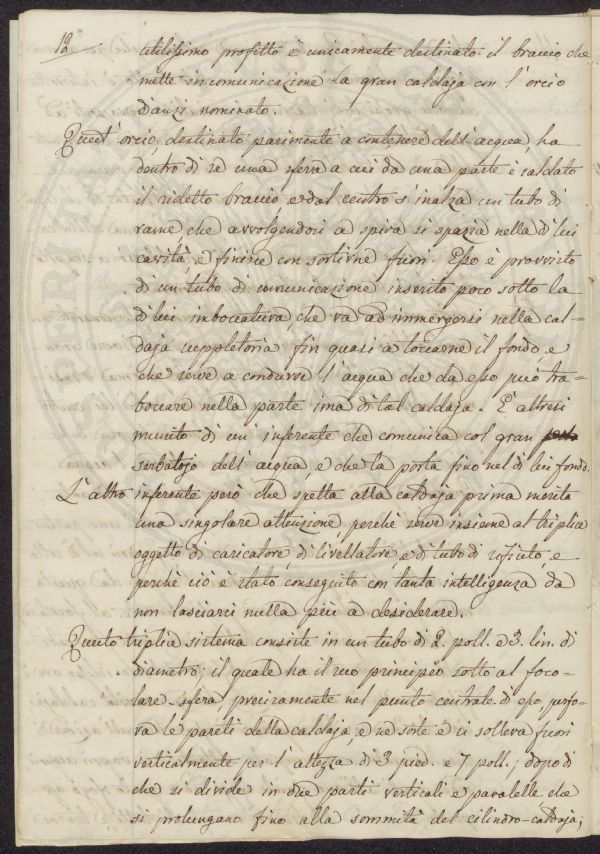 12
utilissimo profitto è unicamente destinato il braccio che
mette in comunicazione la gran caldaja con l'orcio
d'anzi nominato.
Quest'orcio destinato parimente a contenere dell'acqua, ha
dentro di se una sfera a cui da una parte è saldato
il ridetto braccio e dal centro s'inalza un tubo di
rame che avvolgendosi a spira si spazia nella di lui
cavità, e finisce con sortirne fuori. Esso è provvisto
di un tubo di comunicazione inserito poco sotto la
di lui imboccatura, che va ad immergersi nella cal-
daja suppletoria fin quasi a toccarne il fondo, e
che serve a condurvi l'acqua che da esso può tra-
boccare nella parte ima di tal caldaja. È altresì
munito di un' inferente che comunica col gran
serbatojo dell'acqua, e che la porta fino nel di lui fondo.
L'altro inferente però che spetta alla caldaja prima merita
una singolare attenzione perchè serve insieme al triplice
oggetto di caricatore, di livellatore, e di tubo di rifiuto, e
perchè ciò è stato conseguito con tanta intelligenza da
non lasciarci nulla più a desiderare.
Questo triplice sistema consiste in un tubo di 2. poll. e 3. lin. di
diametro; il quale ha il suo principio sotto al foco-
lare-sfera, precisamente nel punto centrale di esso, perfo-
ra le pareti della caldaja, e ne sorte e si solleva fuori
verticalmente per l'altezza di 3 pied. e 7 poll.; dopo di
che si divide in due parti verticali e paralelle che
si prolungano fino alla sommità del cilindro-caldaja;